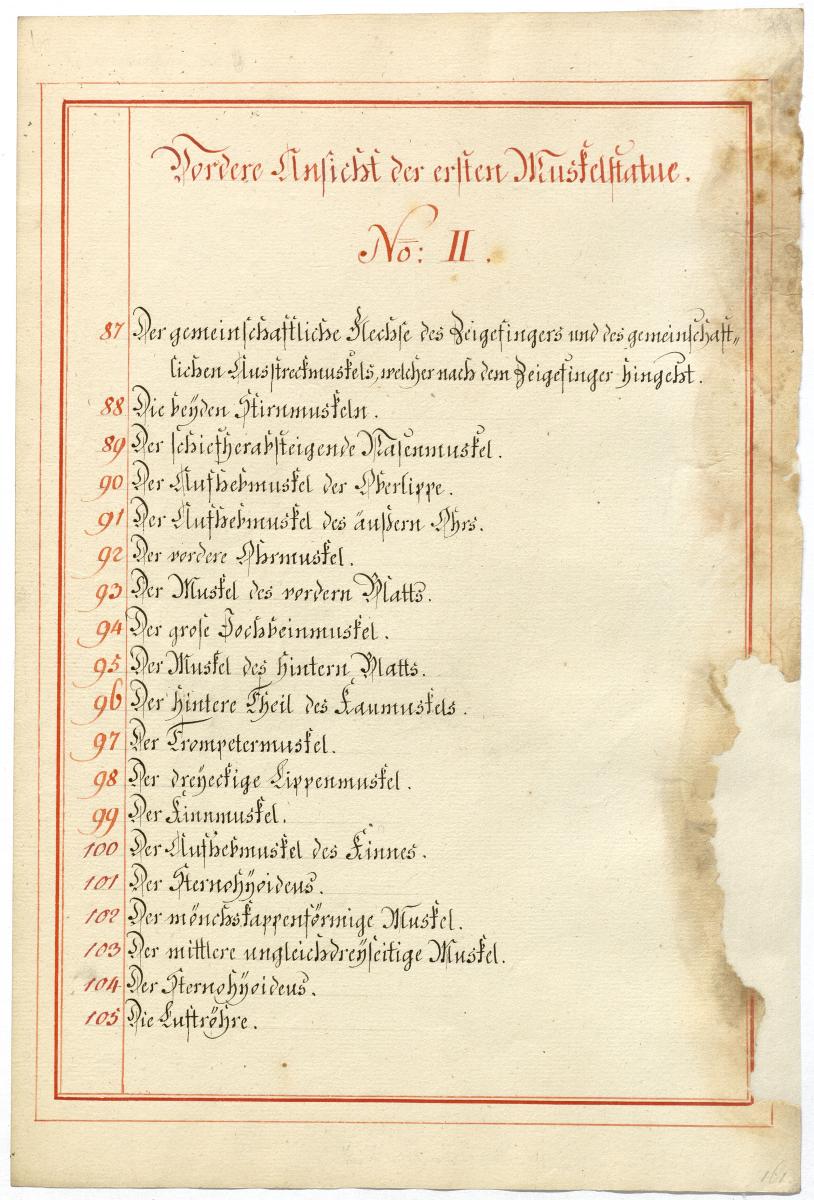 Vordere Ansicht der ersten Muskelstatue.
No: II.
87 Der gemeinschaftliche Flechse des Zeigefingers und des gemeinschaft-
lichen Ausstreckmuskels, welcher nach dem Zeigefinger hingeht.
88 Die beyden Stirnmuskeln.
89 Der schiefherabsteigende Nasenmuskel.
90 Der Aufhebmuskel der Oberlippe.
91 Der Aufhebmuskel des äußern Ohrs.
92 Der vordere Ohrmuskel.
93 Der Muskel des vordern Blatts.
94 Der grose Jochbeinmuskel.
95 Der Muskel des hintern Blatts.
96 Der hintere Theil des Kaumuskels.
97 Der Trompetermuskel.
98 Der dreyeckige Lippenmuskel.
99 Der Kinnmuskel.
100 Der Aufhebmuskel des Kinnes.
101 Der Sternohÿoideus.
102 Der mönchskappenförmige Muskel.
103 Der mittlere ungleichdreyseitige Muskel.
104 Der Sternohÿoideus.
105 Die Luftröhre.
161